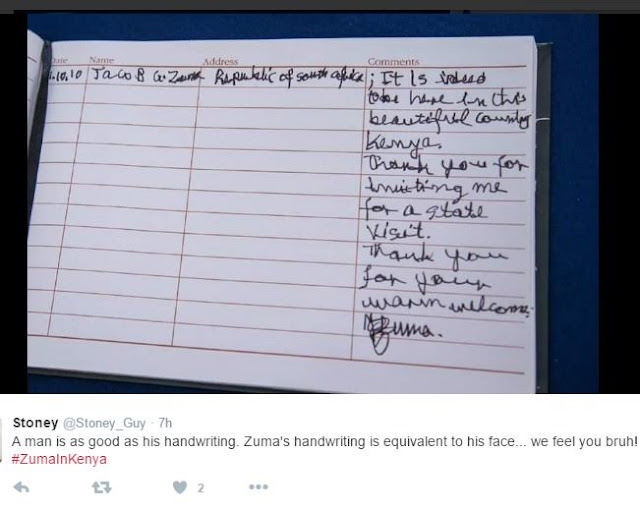 Date Name Address Comments
.10.10 Jacob G Zuma Republic of South Africa ; It Is indeed
to be here in this
beautiful country
Kenya.
Thank you for
inviting me
for a state
visit.
Thank you
for your
warm welcome.
Zuma.
Stoney @Stoney_Guy · 7h
A man is as good as his handwriting. Zuma's handwriting is equivalent to his face... we feel you bruh!
#ZumaInKenya
2